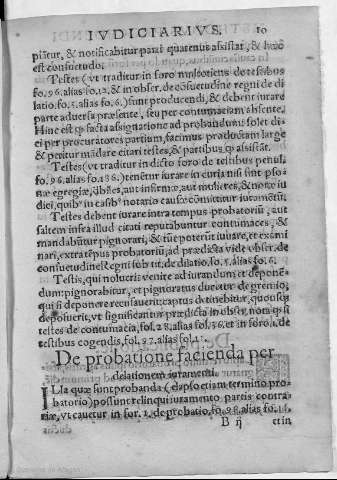 IVDICIARIVS. 10
piātur, & notificabitur parti quatenus assistat, & hæc
est consuetudo.
Testes (vt traditur in foro nullotiens de testibus
fo. 96. alias fo. 12. & in obser. de cōsuetudine regni de di
latio. fo. 5. alias fo. 6.) sunt producendi, & debent iurare
parte aduersa præsente, seu per contumaciam absente.
Hinc est qp facta assignatione ad probandum solet di
ci per procuratores partium, facimus productam large
& petitur mādare citari testes, & partibus qp assistāt.
Testes (vt traditur in dicto foro de testibus penul.
fo. 96. alias fo. 186.) tenētur iurare in curia nisi sint pso-
næ egregiæ, vbiles, aut infirmæ, aut mulieres, & notæ iu
dici, quib⁹ in casib⁹ notario causæ cōmittitur iuramētū.
Testes debent iurare intra tempus probatoriū, aut
saltem infra illud citati reputabuntur contumaces, &
mandabūtur pignorari, & tūc poterūt iurare, et exami
nari, extra tēpus probatoriū, ad prædicta vide obser. de
consuetudine Regni sub tit. de dilatio. fo. 5. alias fo. 6.
Testis, qui noluerit venire ad iurandum et deponē-
dum: pignorabitur, et pignoratus ducetur de gremio,
qui si deponere recusauerit: captus detinebitur, quousq;
deposuerit, vt significantur prædicta in obser. non qp si
testes de contumacia, fol. 28. alias fol. 36. et in foro 1. de
testibus cogendis, fol. 97. alias fol. 1
De probatione facienda per
delationem iuramenti.
ILla quæ sunt probanda (elapso etiam termino pro-
batorio) possunt relinqui iuramento partis contra-
riæ, vt cauetur in for. 1. de probatio. fo. 98. alias fo. 14.
B ij etin